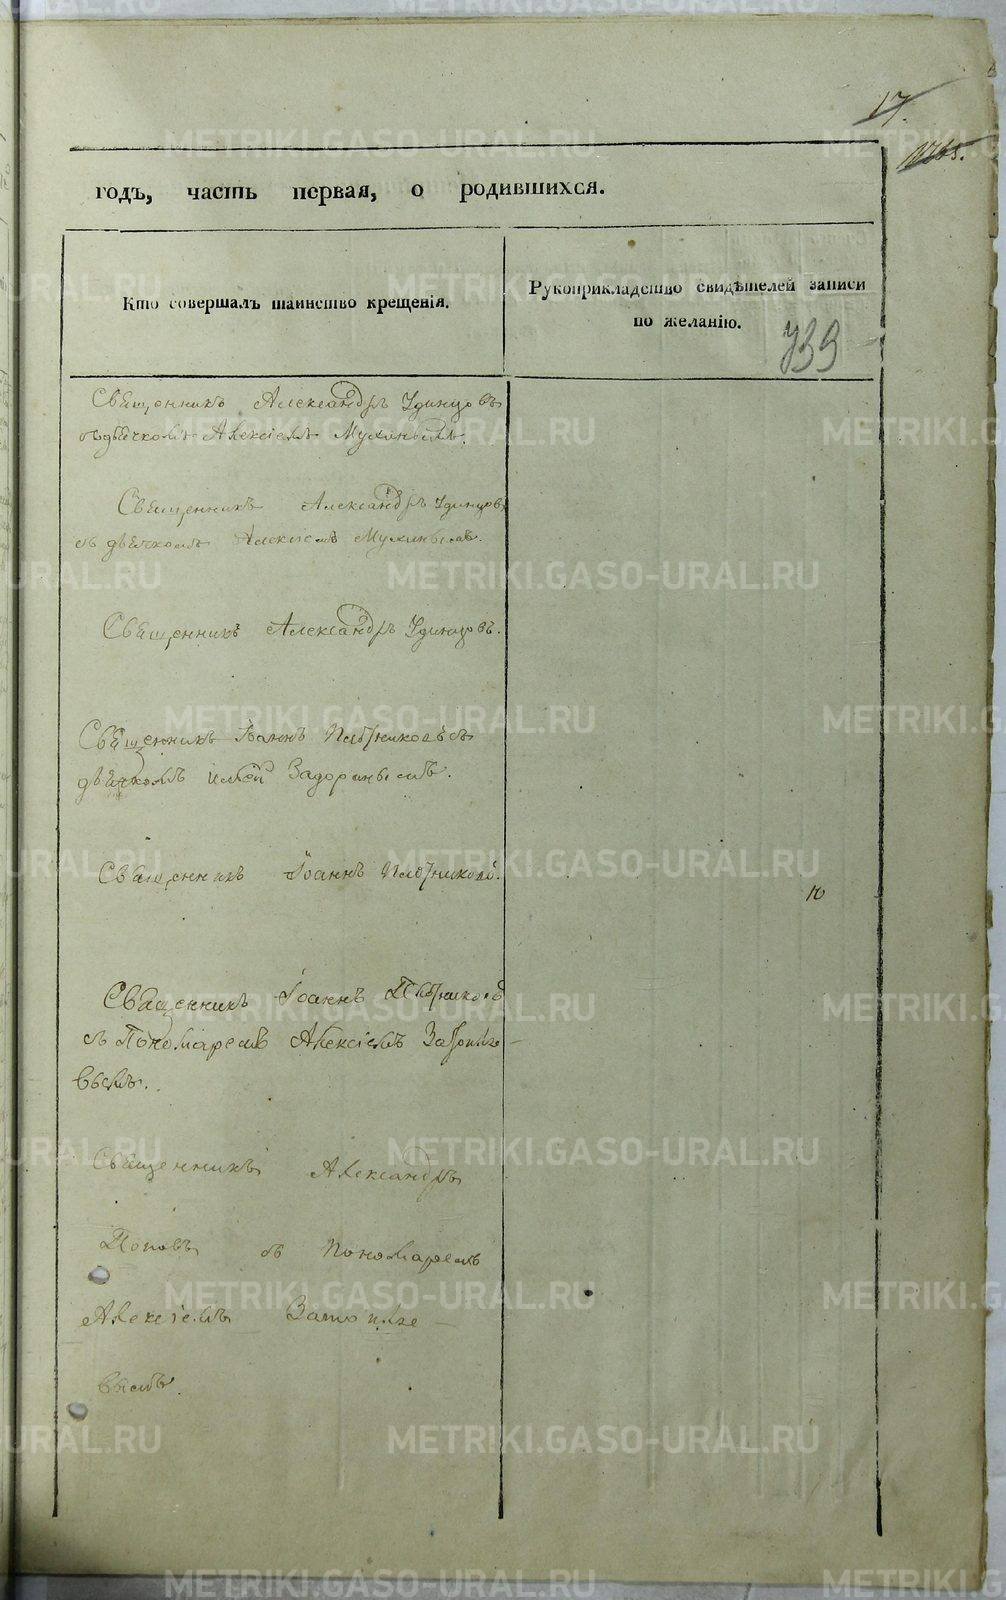 17.
годъ, часть первая, о родившихся.
Кто совершалъ таинство крещенія.
Рукоприкладство свидѣтелей записи
по желанію.
739
Священникъ Александръ Удинцовъ
съ дьячкомъ Алексіемъ Мухинымъ.
Священникъ Александръ Удинцовъ
съ дьячкомъ Алексіемъ Мухинымъ.
Священникъ Александръ Удинцовъ.
Священникъ Іоаннъ Плотниковъ съ
дьячкомъ Иліей Задоринымъ.
Священникъ Іоаннъ Плотниковъ.
Священникъ Іоаннъ Плотниковъ
съ Пономаремъ Алексіемъ Затопляе-
вымъ.
Священникъ Александръ
Поповъ съ Пономаремъ
Алексіемъ Затопляе-
вымъ.
METRIKI.GASO-URAL.RU